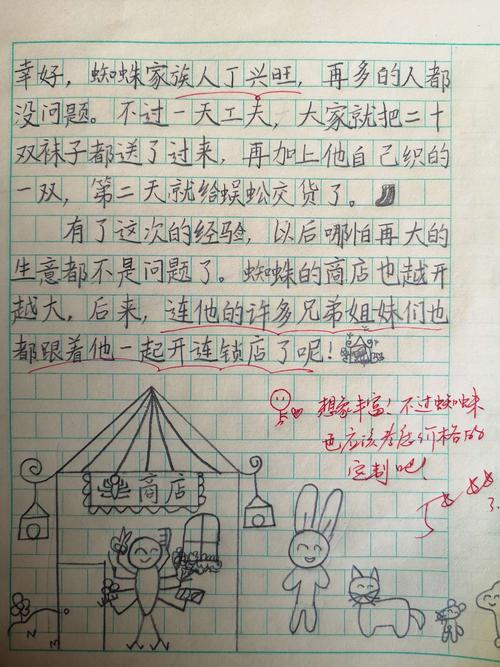 幸好，蜘蛛家族人丁兴旺，再多的人都
没问题。不过一天工夫，大家就把二十
双袜子都送了过来，再加上他自己织的
一双，第二天就给蜈蚣交货了。
有了这次的经验，以后哪怕再大的
生意都不是问题了。蜘蛛的商店也越开
越大，后来，连他的许多兄弟姐妹们也
都跟着他一起开连锁店了呢！
想象丰富！不过蜘蛛
也应该考虑价格的
定制吧！
商店